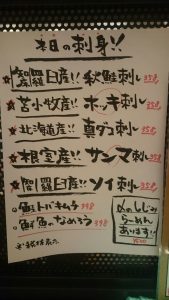 本日の刺身!!
羅臼産!! 秋鮭刺し 358
苫小牧産!! ホッキ刺し 358
北海道産!! 真ダコ刺し 358
根室産!! サンマ刺し 358
羅臼産!! ソイ刺し 358
鮭トバキムチ 398
鮮魚のなめろう 398
〆のしじみ
らーめん
あります!!